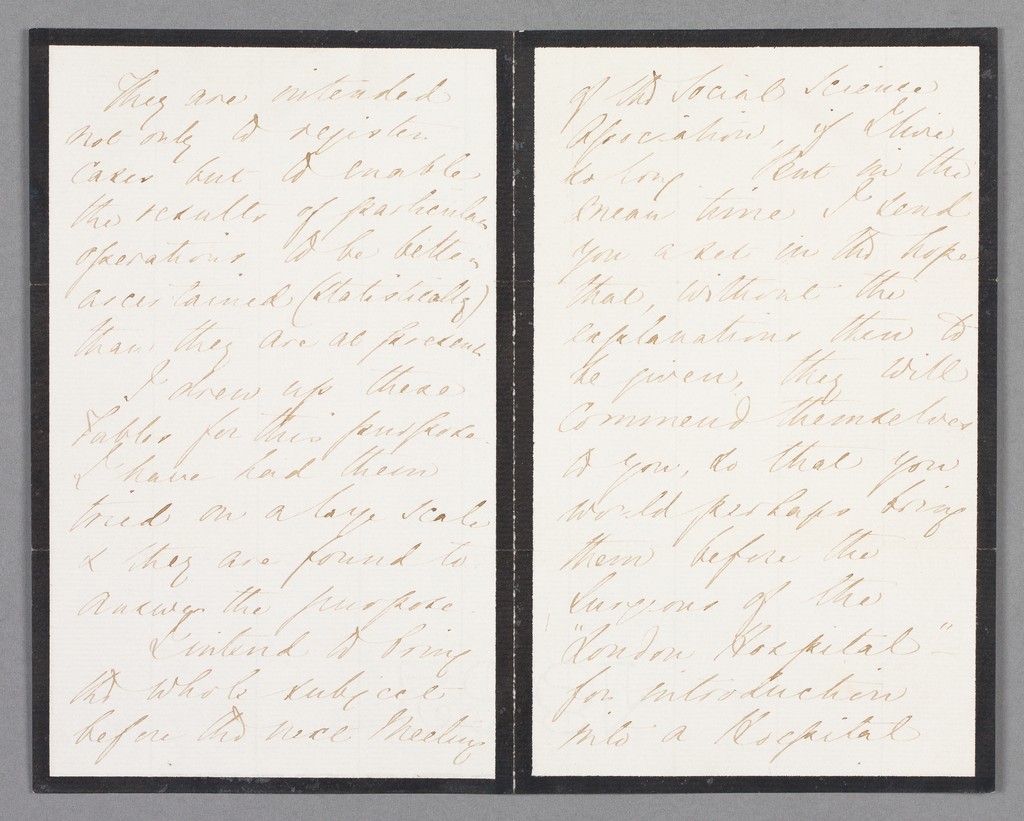 They are intended
not only to register
cases but to enable
the results of particular
operations to be better
ascertained (statistically)
than they are at present
I drew up these
Tables for this purpose.
I have had them
tried on a large scale
& they are found to
answer the purpose.
I intend to bring
the whole subject
before the next Meeting
of the Social Science
Association, if I live
so long. But in the
mean time I send
you a set in the hope
that, without the
explanations then to
be given, they will
commend themselves
to you, so that you
would perhaps bring
them before the
Surgeons of the
"London Hospital" -
for introduction
into a Hospital